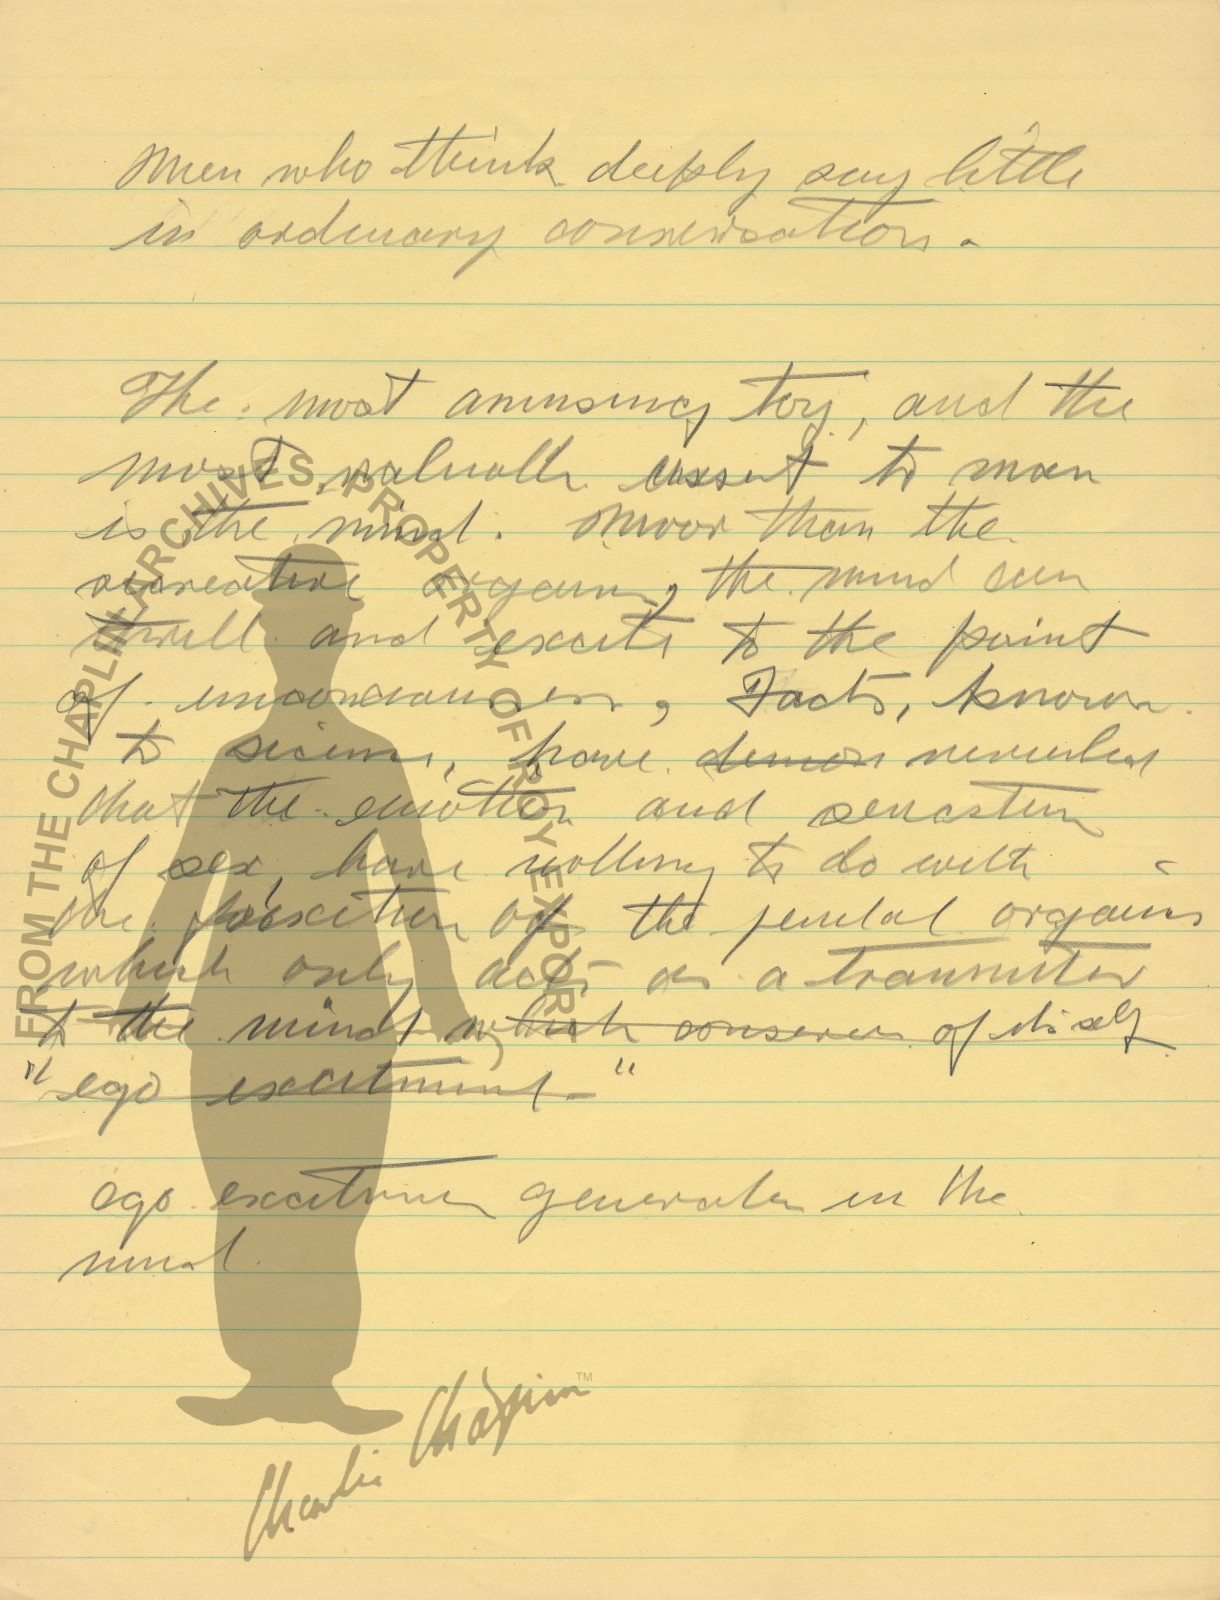 Men who think deeply say little
in ordinary conversation.
The most amusing toy, and the
most valuable asset to man
is the mind. Moor than the
recreative organs, the mind can
thrill and excite to the point
of unconsciousness, Facts, known
to science, have demon revealed
that the emotion and sensation
of sex, have nothing to do with
the excition of the genital organs
which only acts as a transmitter
to the mind which conserves of its self
"ego excitment"
ego excitment generates in the
mind.
FROM THE CHAPLIN ARCHIVES. PROPERTY OF ROY EXPORT
Charlie Chaplin™